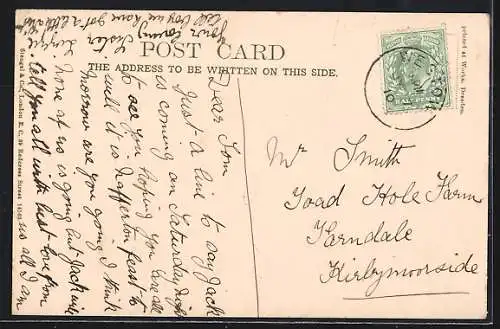 POST CARD
THE ADDRESS TO BE WRITTEN ON THIS SIDE.
Dear Tom
Just a line to say Jack
is coming on Saturday night
to see you hoping you are all
well it is Nafferton feast to
morrow are you going I think
none of us is going but Jack will
tell you all with best love from
us all I am
your loving sister Lizzie
tell
have got a
Mr Smith
Toad Hole Farm
Farndale
Kirbymoorside
Stengel & Co., London E. C. 39 Redcross Street
printed at Works, Dresden.
10